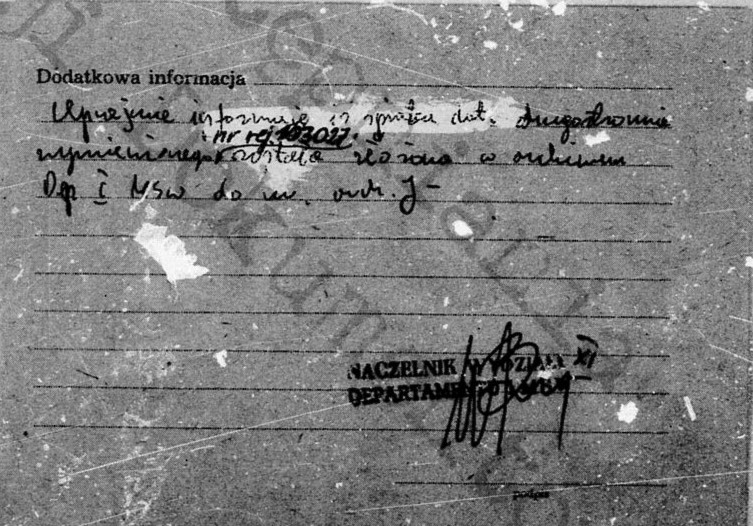 Dodatkowa informacja
Uprzejmie informuję iż sprawa dot. drugostronnie
nr rej. 103027
wymienionego została złożona w archiwum
Dep I MSW do nr. arch. J-
NACZELNIK WYDZIAŁU XI
DEPARTAMENTU I MSW
podpis